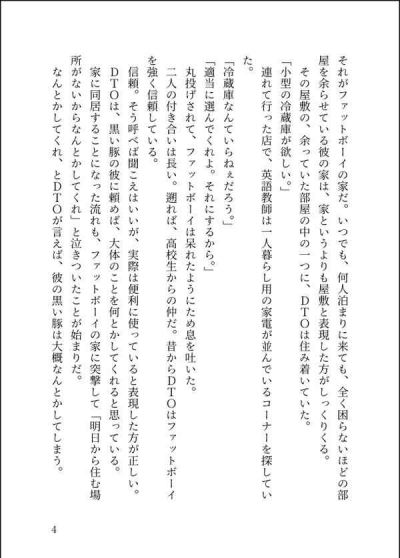 それがファットボーイの家だ。いつでも、何人泊まりに来ても、全く困らないほどの部
屋を余らせている彼の家は、家というよりも屋敷と表現した方がしっくりくる。
その屋敷の、余っていた部屋の中の一つに、ＤＴＯは住み着いていた。
「小型の冷蔵庫が欲しい。」
連れて行った店で、英語教師は一人暮らし用の家電が並んでいるコーナーを探してい
た。
「冷蔵庫なんていらねぇだろう。」
「適当に選んでくれよ。それにするから。」
丸投げされて、ファットボーイは呆れたようにため息を吐いた。
二人の付き合いは長い。遡れば、高校生からの仲だ。昔からＤＴＯはファットボーイ
を強く信頼している。
信頼。そう呼べば聞こえはいいが、実際は便利に使っていると表現した方が正しい。
ＤＴＯは、黒い豚の彼に頼めば、大体のことを何とかしてくれると思っている。
家に同居することになった流れも、ファットボーイの家に突撃して「明日から住む場
所がないからなんとかしてくれ」と泣きついたことが始まりだ。
なんとかしてくれ、とＤＴＯが言えば、彼の黒い豚は大概なんとかしてしまう。
4